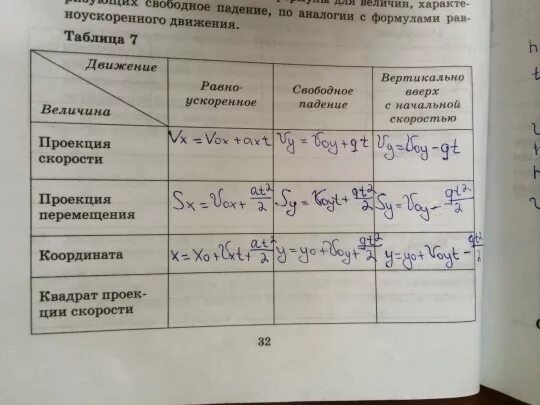 ризующих свободное падение, по аналогии с формулами рав-
ноускоренного движения.
Таблица 7
Движение
Величина
Равно-
ускоренное
Свободное
падение
Вертикально
вверх
с начальной
скоростью
Проекция
скорости
Vx = V0x + axt
Vy = V0y + gt
Vy = V0y - gt
Проекция
перемещения
Sx = V0x + at²/2
Sy = V0yt + gt²/2
Sy = V0y - gt²/2
Координата
x = x0 + Vxt + at²/2
y = y0 + V0y + gt²/2
y = y0 + V0yt - gt²/2
Квадрат проек-
ции скорости
32